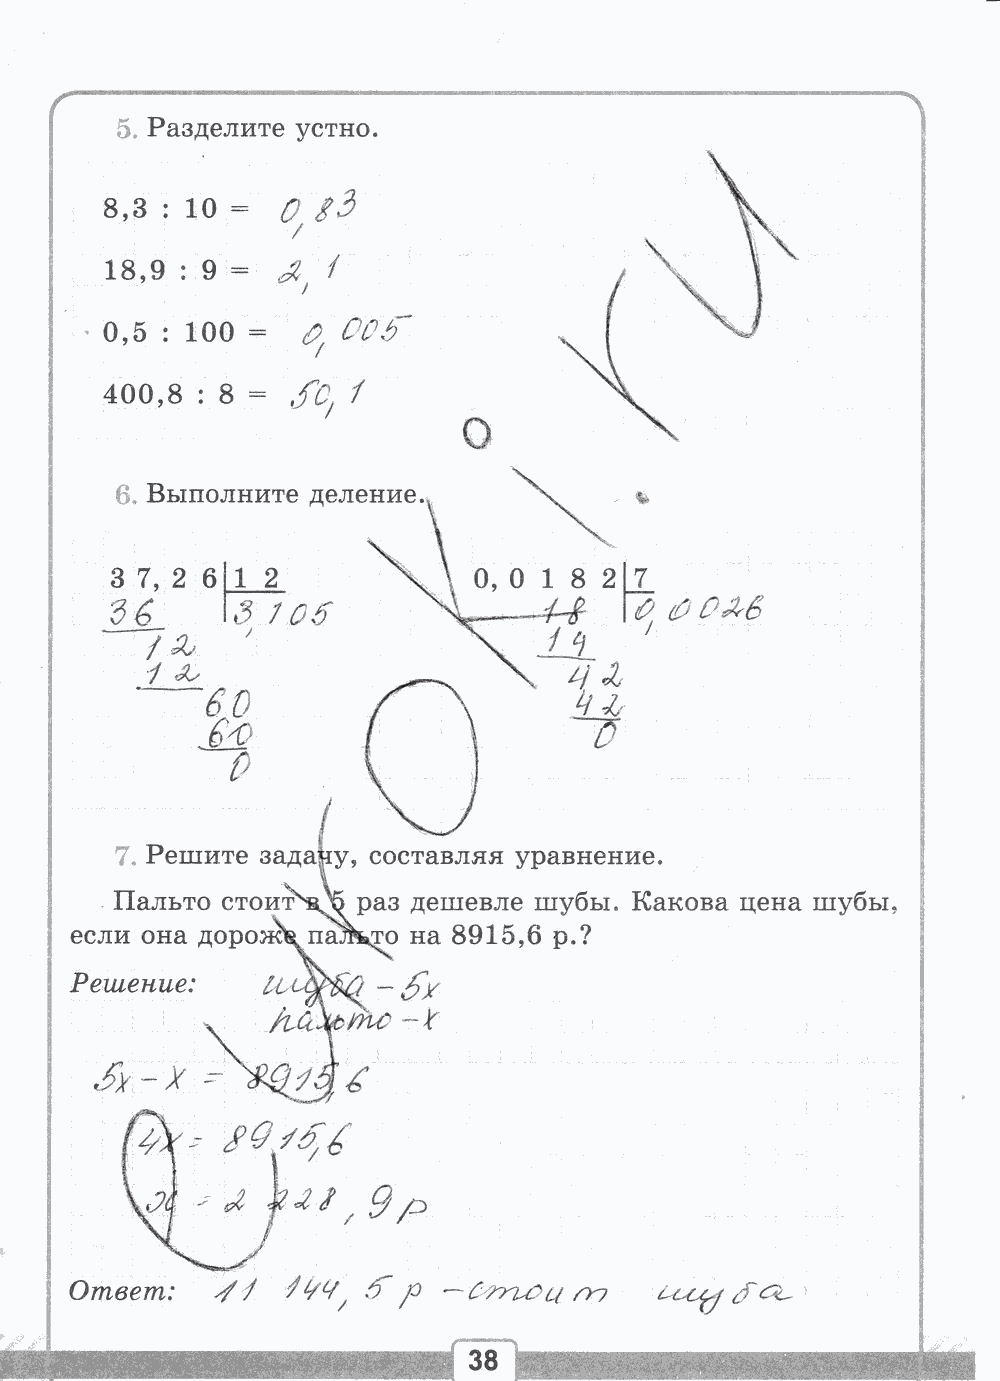 5. Разделите устно.
8,3 : 10 = 0,83
18,9 : 9 = 2,1
0,5 : 100 = 0,005
400,8 : 8 = 50,1
6. Выполните деление.
37,26 12 0,0182 7
36 3,105 18 0,0026
12 14
12 42
60 42
60 0
0
7. Решите задачу, составляя уравнение.
Пальто стоит в 5 раз дешевле шубы. Какова цена шубы,
если она дороже пальто на 8915,6 р.?
Решение: шуба – 5х
пальто – х
5х – х = 8915,6
4х = 8915,6
х = 2 228,9 р
Ответ: 11 144,5 р – стоит шуба
38